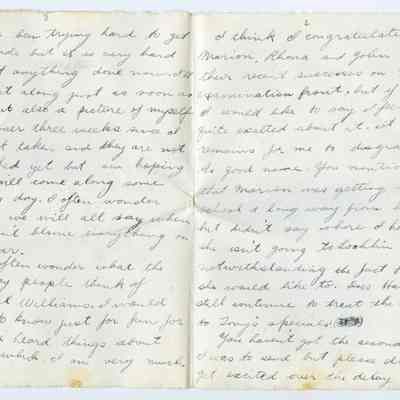 ben trying hard to get
but it is very hard
anything done now. I'll
it along just as soon as
but also a picture of myself
over three weeks since I
taken and they are not
yet but am hoping
will come along some
day. I often wonder
we will all say when
can't blame everything on
often wonder what the
people think of
Williams. I would
to know just for fun for
heard things about
which I am very much
2
I think I congratulate
Marion, Rhona and John
their recent successes on
examination front, but if
I would like to say I feel
quite excited about it. It
remains for me to disgrace
its good name. You mention
that Marion was getting
school a long way from
but didn't say where. I
she isn't going to
notwithstanding the fact
she would like to. Does
still continue to treat the
to Tony's specials
You haven't got the second
I was to send but please don't
get excited over the delay